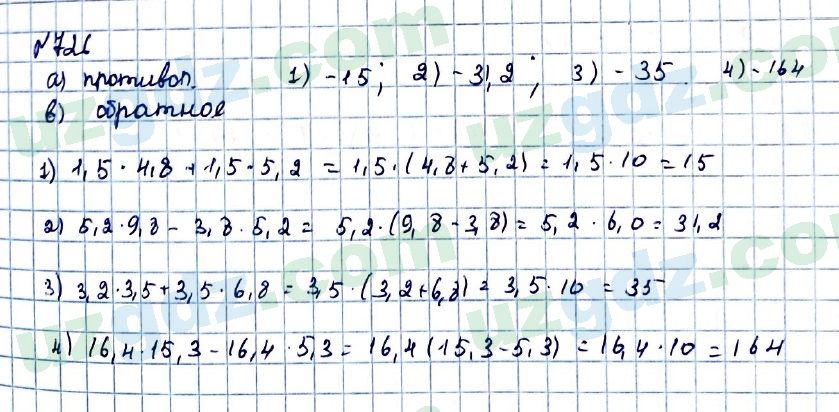 №726
а) противоп. 1) -15; 2) -31,2; 3) -35 4) -164
в) обратное
1) 1,5·4,8+1,5·5,2 = 1,5·(4,8+5,2) = 1,5·10 = 15
2) 5,2·9,8-3,8·5,2 = 5,2·(9,8-3,8) = 5,2·6,0 = 31,2
3) 3,2·3,5+3,5·6,8 = 3,5·(3,2+6,8) = 3,5·10 = 35
4) 16,4·15,3-16,4·5,3 = 16,4(15,3-5,3) = 16,4·10 = 164
uzgdz.com